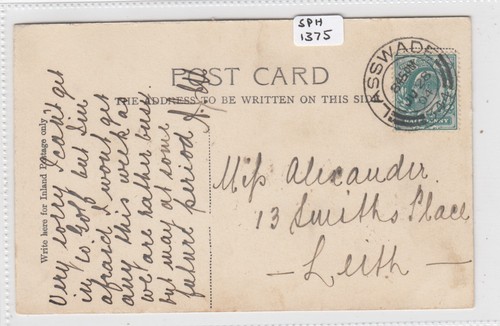 SPH
1375
LASSWADE
POST CARD
THE ADDRESS TO BE WRITTEN ON THIS SIDE
Write here for Inland Postage only
Very sorry I can't get
in to Golf but I'm
afraid I won't get
any this week as
we are rather busy
but may at some
future period
Miss Alexander.
13 Smiths Place
- Leith -